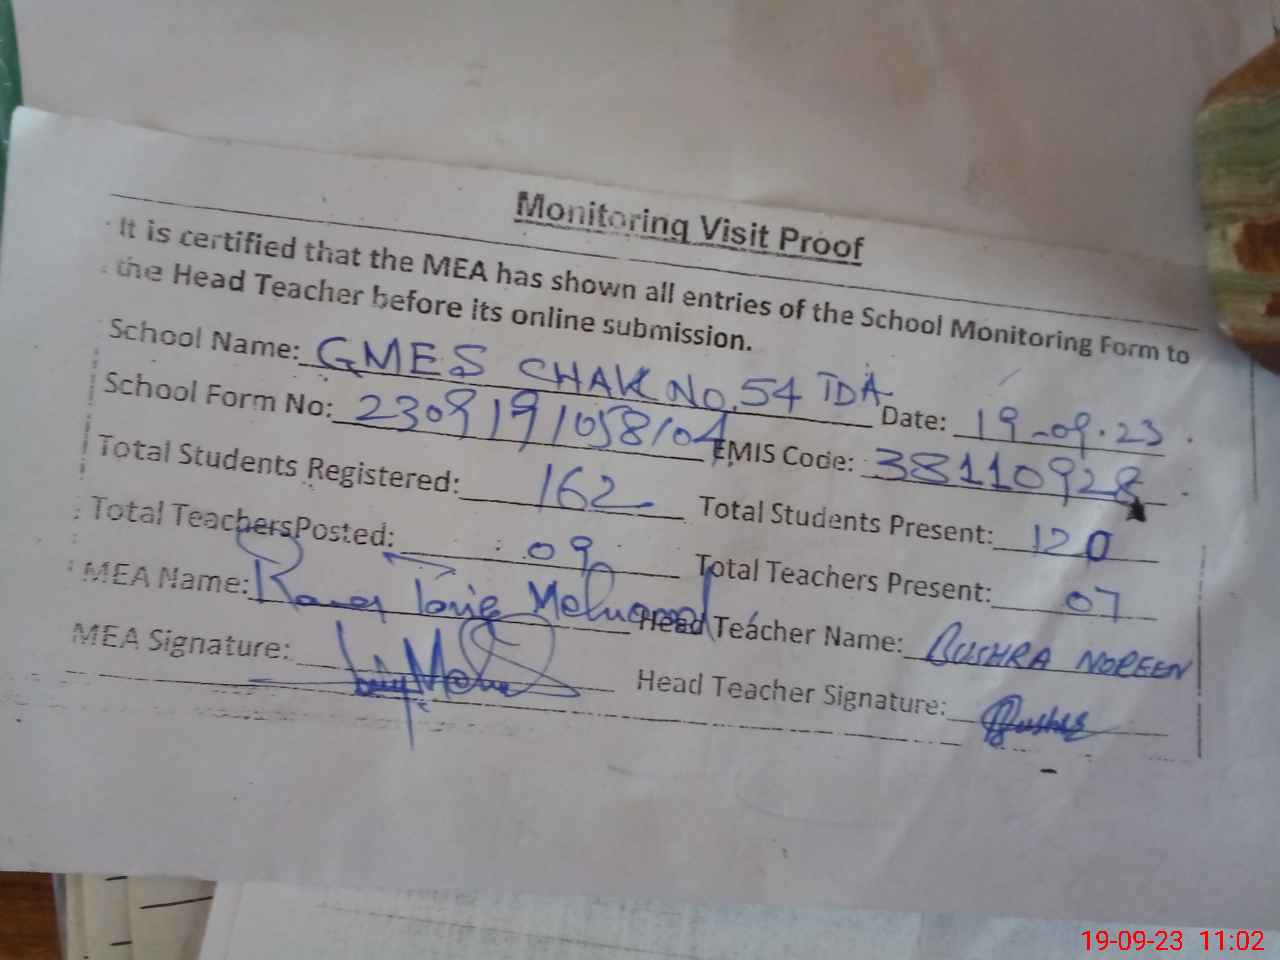 Monitoring Visit Proof
It is certified that the MEA has shown all entries of the School Monitoring Form to
the Head Teacher before its online submission.
School Name: GMES CHAK No. 54 TDA Date: 19-09.23
School Form No: 2309191058104 EMIS Code: 38110928
Total Students Registered: 162 Total Students Present: 120
Total TeachersPosted: 09 Total Teachers Present: 07
MEA Name: Head Teacher Name: BUSHRA NOREEN
MEA Signature: Head Teacher Signature:
19-09-23 11:02